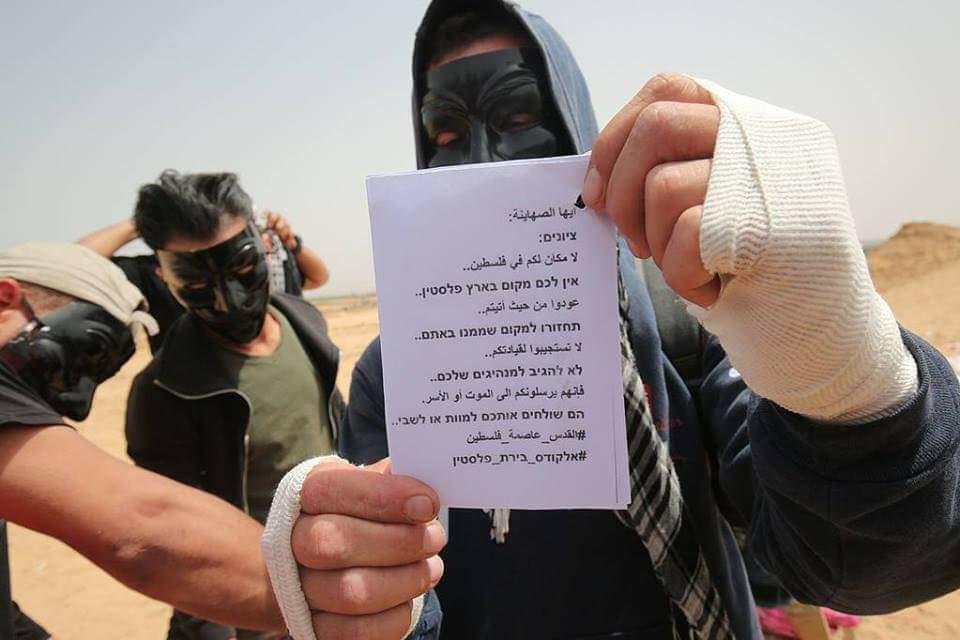 أيها الصهاينة:
ציונים:
لا مكان لكم في فلسطين..
אין לכם מקום בארץ פלסטין..
عودوا من حيث أتيتم..
תחזורו למקום שממנו באתם..
لا تستجيبوا لقيادتكم..
לא להגיב למנהיגים שלכם..
فإنهم يرسلونكم الى الموت أو الأسر.
הם שולחים אותכם למוות או לשבי..
#القدس_عاصمة_فلسطين
#אלקודס_בירת_פלסטין